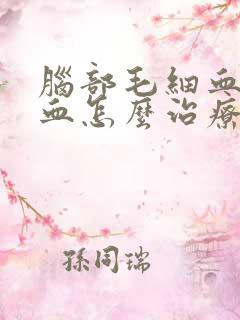 腦部毛細血
血怎麼治療
孫同瑞